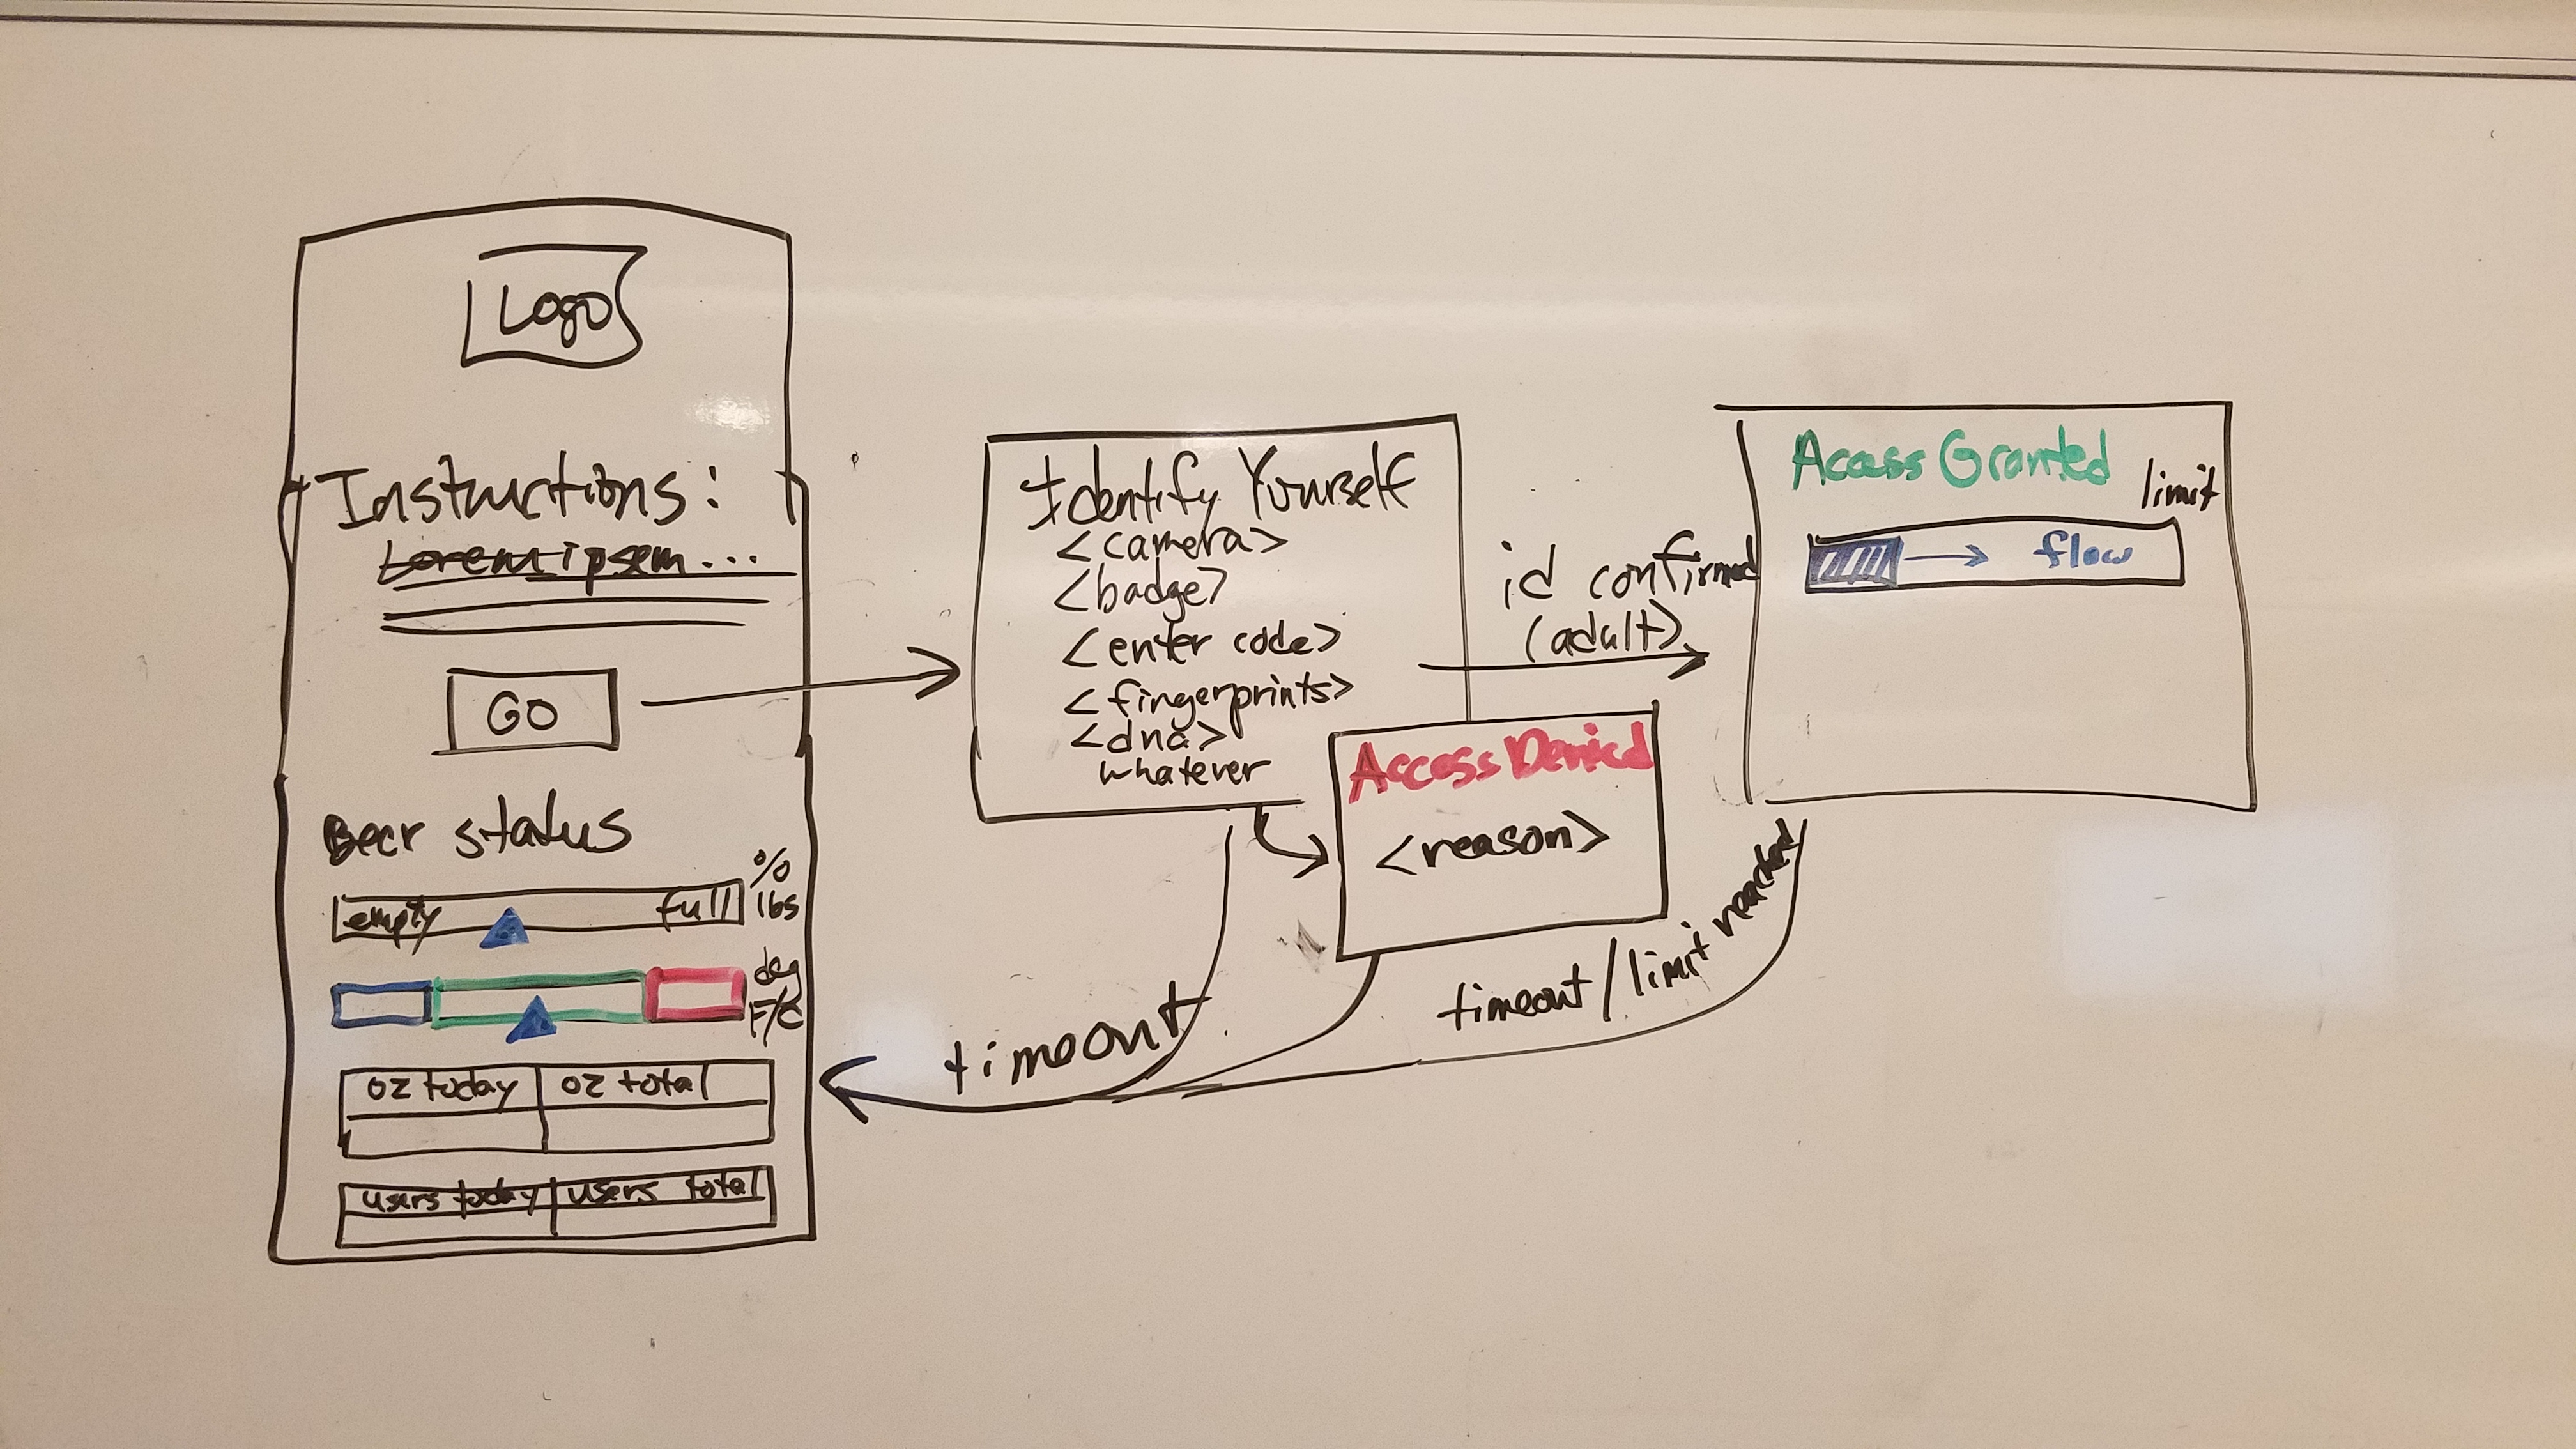 Logo
Instructions:
Lorem ipsem...
GO
Beer status
empty full
%
lbs
deg
F/C
oz today oz total
users today users total
Identify Yourself
<camera>
<badge>
<enter code>
<fingerprints>
<dna>
whatever
id confirmed
(adult)
Access Granted
limit
flow
Access Denied
<reason>
timeout
timeout/limit reached